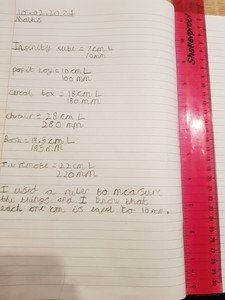 10.02.2021
Maths
Infinity cube = 7cm L
70mm
popit boy = 10cm L
100 mm
cereal box = 18cm L
180 mm
chair = 28cm L
280 mm
Book = 19.5cm L
195mm
T.v remote = 22cm L
220mm
I used a ruler to measure
the things and I know that
each one cm is equal to 10mm.
Shatterproof